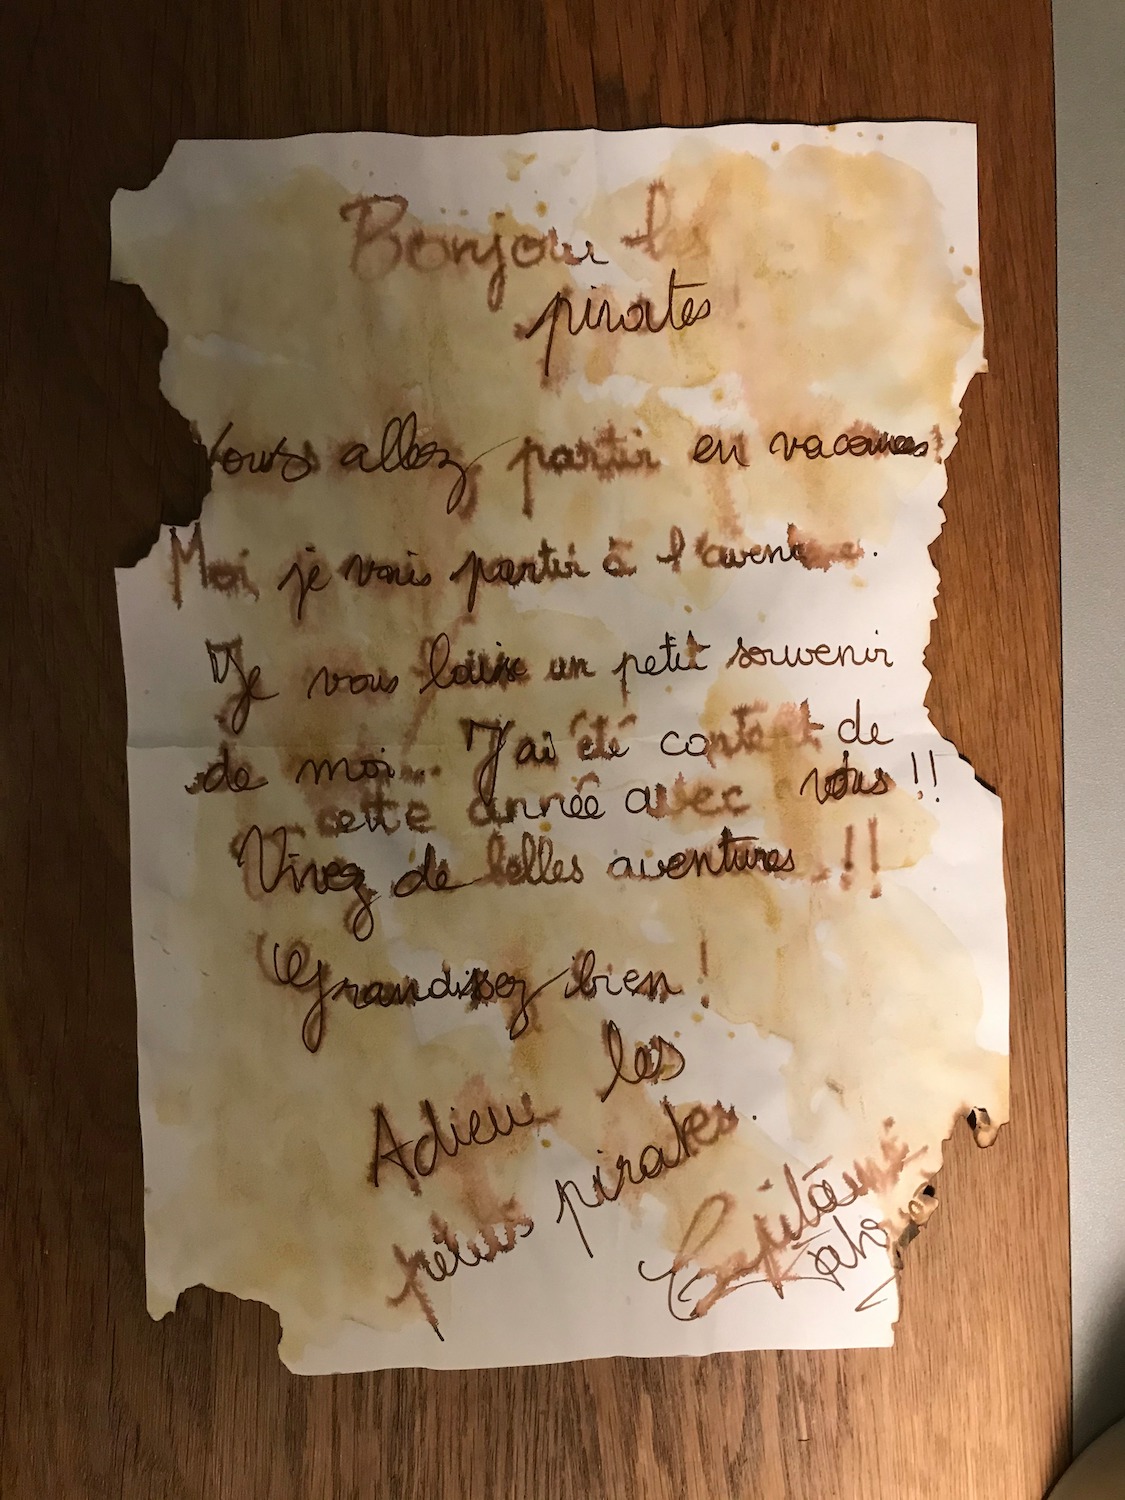 Bonjour les
pirates
Vous allez partir en vacances!
Moi je vais partir à l'aventure.
Je vous laisse un petit souvenir
de moi... J'ai été content de
cette année avec vous !!
Vivez de belles aventures !!
Grandissez bien !
Adieu les
petits pirates.
Capitaine